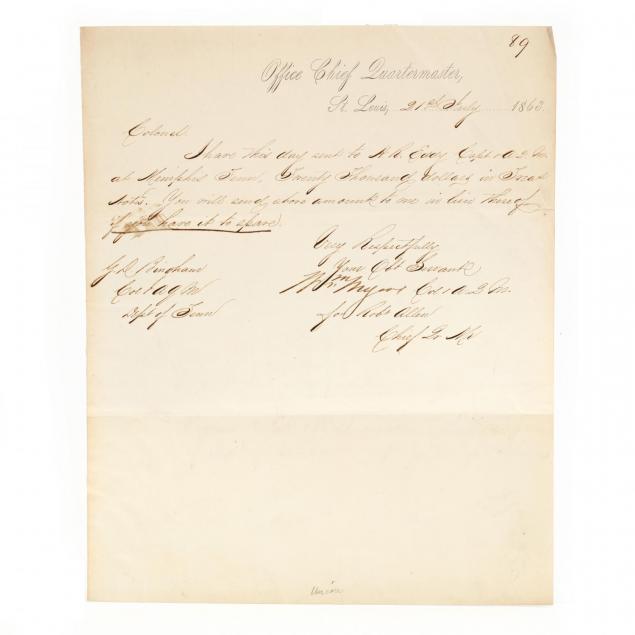 89
Office Chief Quartermaster,
St. Louis, 21st July 1863.
Colonel
I have this day sent to A. R. Eddy Capt & A Q M
at Memphis Tenn, Twenty Thousand dollars in Treas
Notes. You will send above amount to me in lieu thereof
if you have it to spare.
Very Respectfully
Your Obt Servant
Wm Myers Col & A. Q. M.
for Robt Allen
Chief Qr Mr
J D Bingham
Col & A Q M
Dept of Tenn
Union